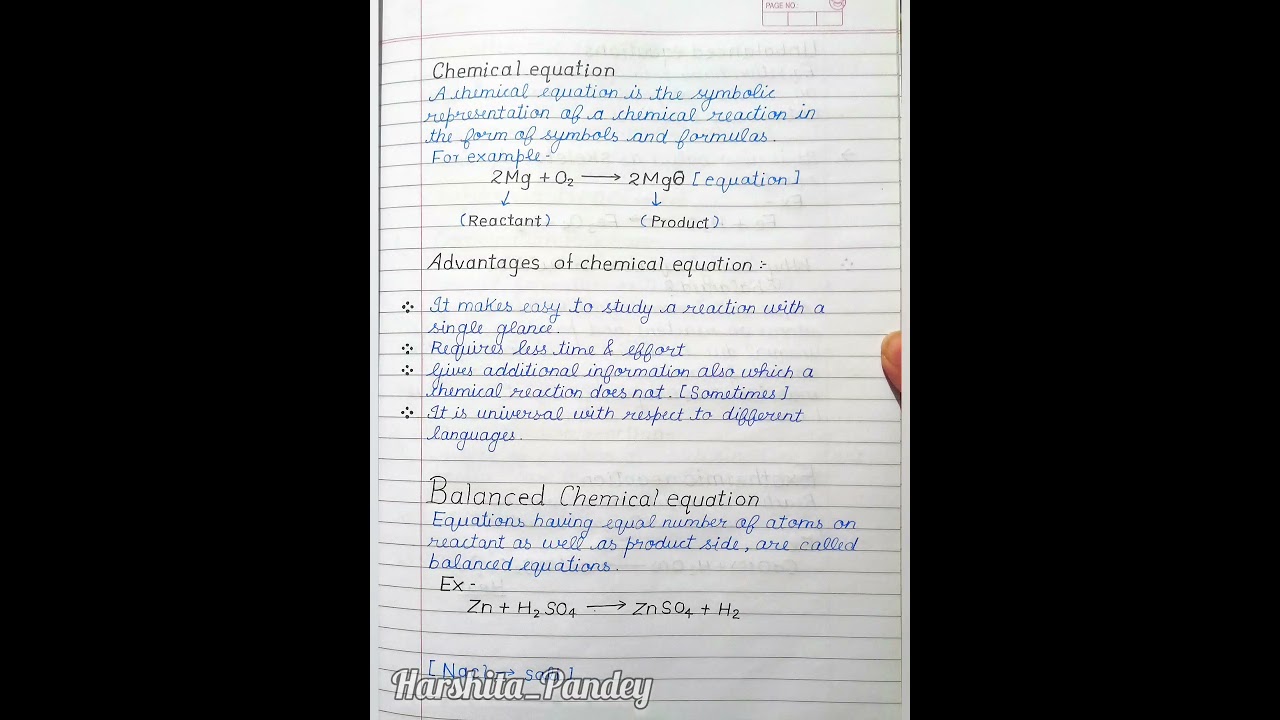 PAGE NO.
Chemical equation
A chemical equation is the symbolic
representation of a chemical reaction in
the form of symbols and formulas.
For example -
2Mg + O₂ ⟶ 2MgO [equation]
↓ ↓
(Reactant) (Product)
Advantages of chemical equation :-
It makes easy to study a reaction with a
single glance.
Requires less time & effort
Gives additional information also which a
chemical reaction does not. [Sometimes]
It is universal with respect to different
languages.
Balanced Chemical equation
Equations having equal number of atoms on
reactant as well as product side, are called
balanced equations.
Ex -
Zn + H₂SO₄ ⟶ ZnSO₄ + H₂
Harshita_Pandey